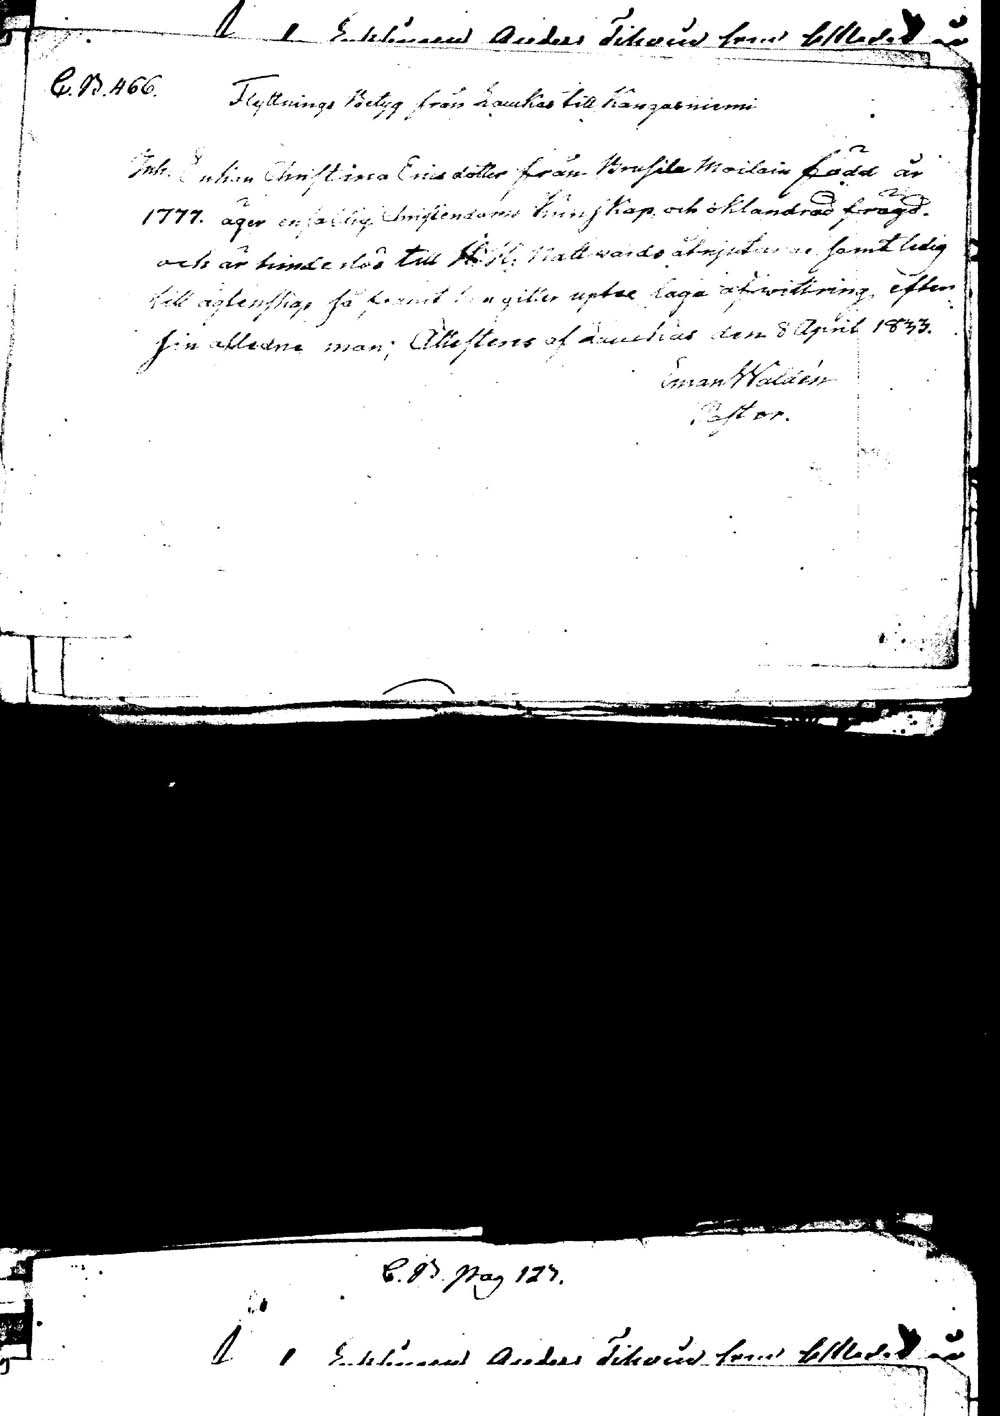 Anders Tikain från
C. B. 466.
Flyttnings Betyg från Laukas till Kangasniemi
Inh. Enkan Christina Ericsdotter från född år
1777. äger enfaldig Christendoms Kunskap och oklandrad frägd.
och är hindelös till H. H. Nattwards åtnjutande samt ledig
till ägtenskap så framt hon gitter uptee laga afwittring efter
sin afledne man; Attesteres af Laukas den 8 April 1833.
Eman Waldén
Pastor.
C. B. pag 127.
Anders Tikain från